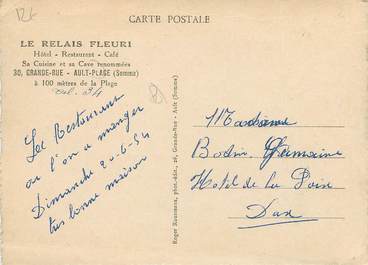 CARTE POSTALE
LE RELAIS FLEURI
Hôtel - Restaurant - Café
Sa Cuisine et sa Cave renommées
30, GRANDE-RUE - AULT-PLAGE (Somme)
à 100 mètres de la Plage
tel. 34
Le Restaurant
ou l'on a manger
Dimanche 20-6-54
très bonne maison
Roger Rousseaux, phot.-édit., 26, Grande-Rue - Ault (Somme)
Madame
Bodin Germaine
Hotel de la Paix
Dax